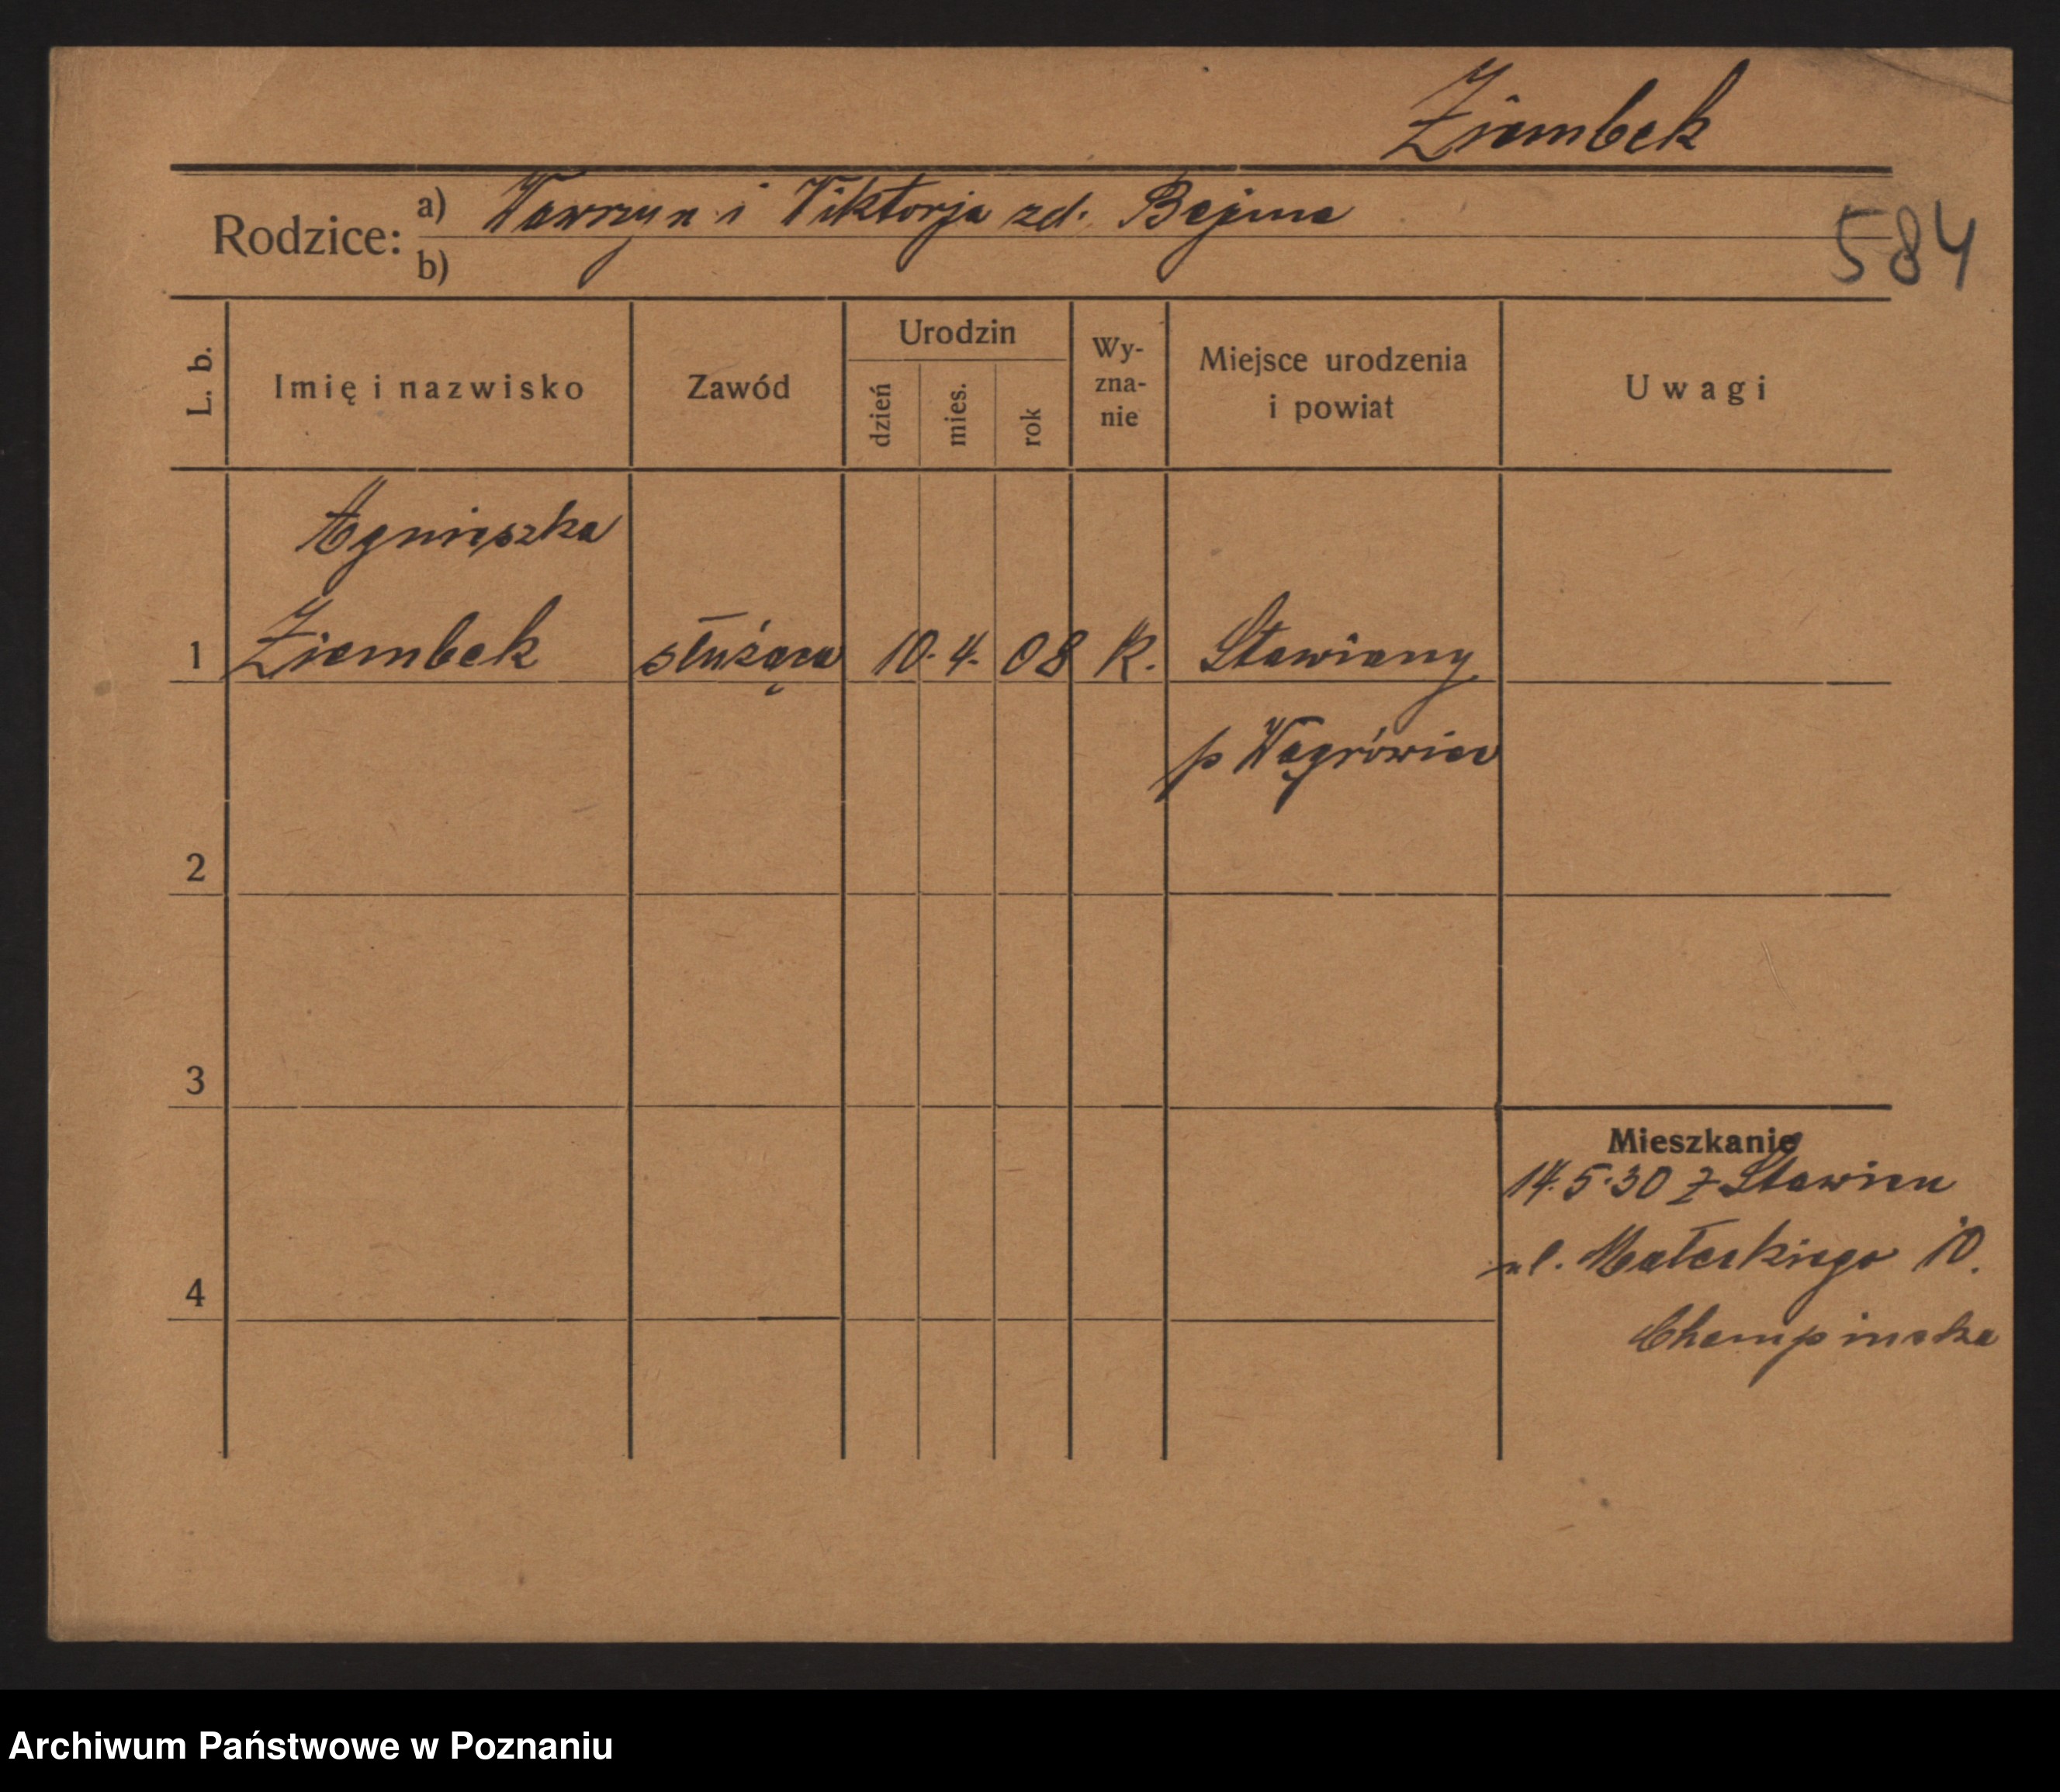 Ziembek
Rodzice: a) Wawrzyn i Viktorja zd. Bejma
b)
584
L. b.
Imię i nazwisko
Zawód
Urodzin
dzień
mies.
rok
Wy-
zna-
nie
Miejsce urodzenia
i powiat
Uwagi
Agnieszka
1 Ziembek służąca 10. 4. 08 K. Stawiany
p Wągrówiec
2
3
Mieszkanie
14.5.30 z Stawian
ul. Małeckiego 10.
4
Archiwum Państwowe w Poznaniu